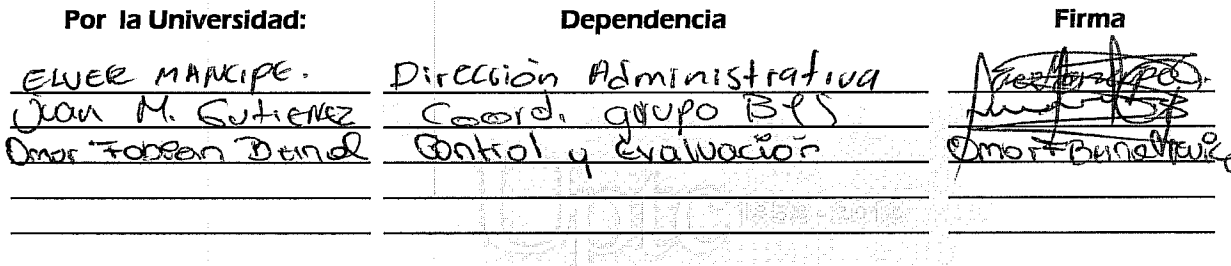 Por la Universidad: Dependencia Firma
ELVER MANCIPE. Dirección Administrativa
Juan M. Gutierrez Coord. grupo BYS
Omar Fabian Bernal Control y Evaluación Omar F Bernal